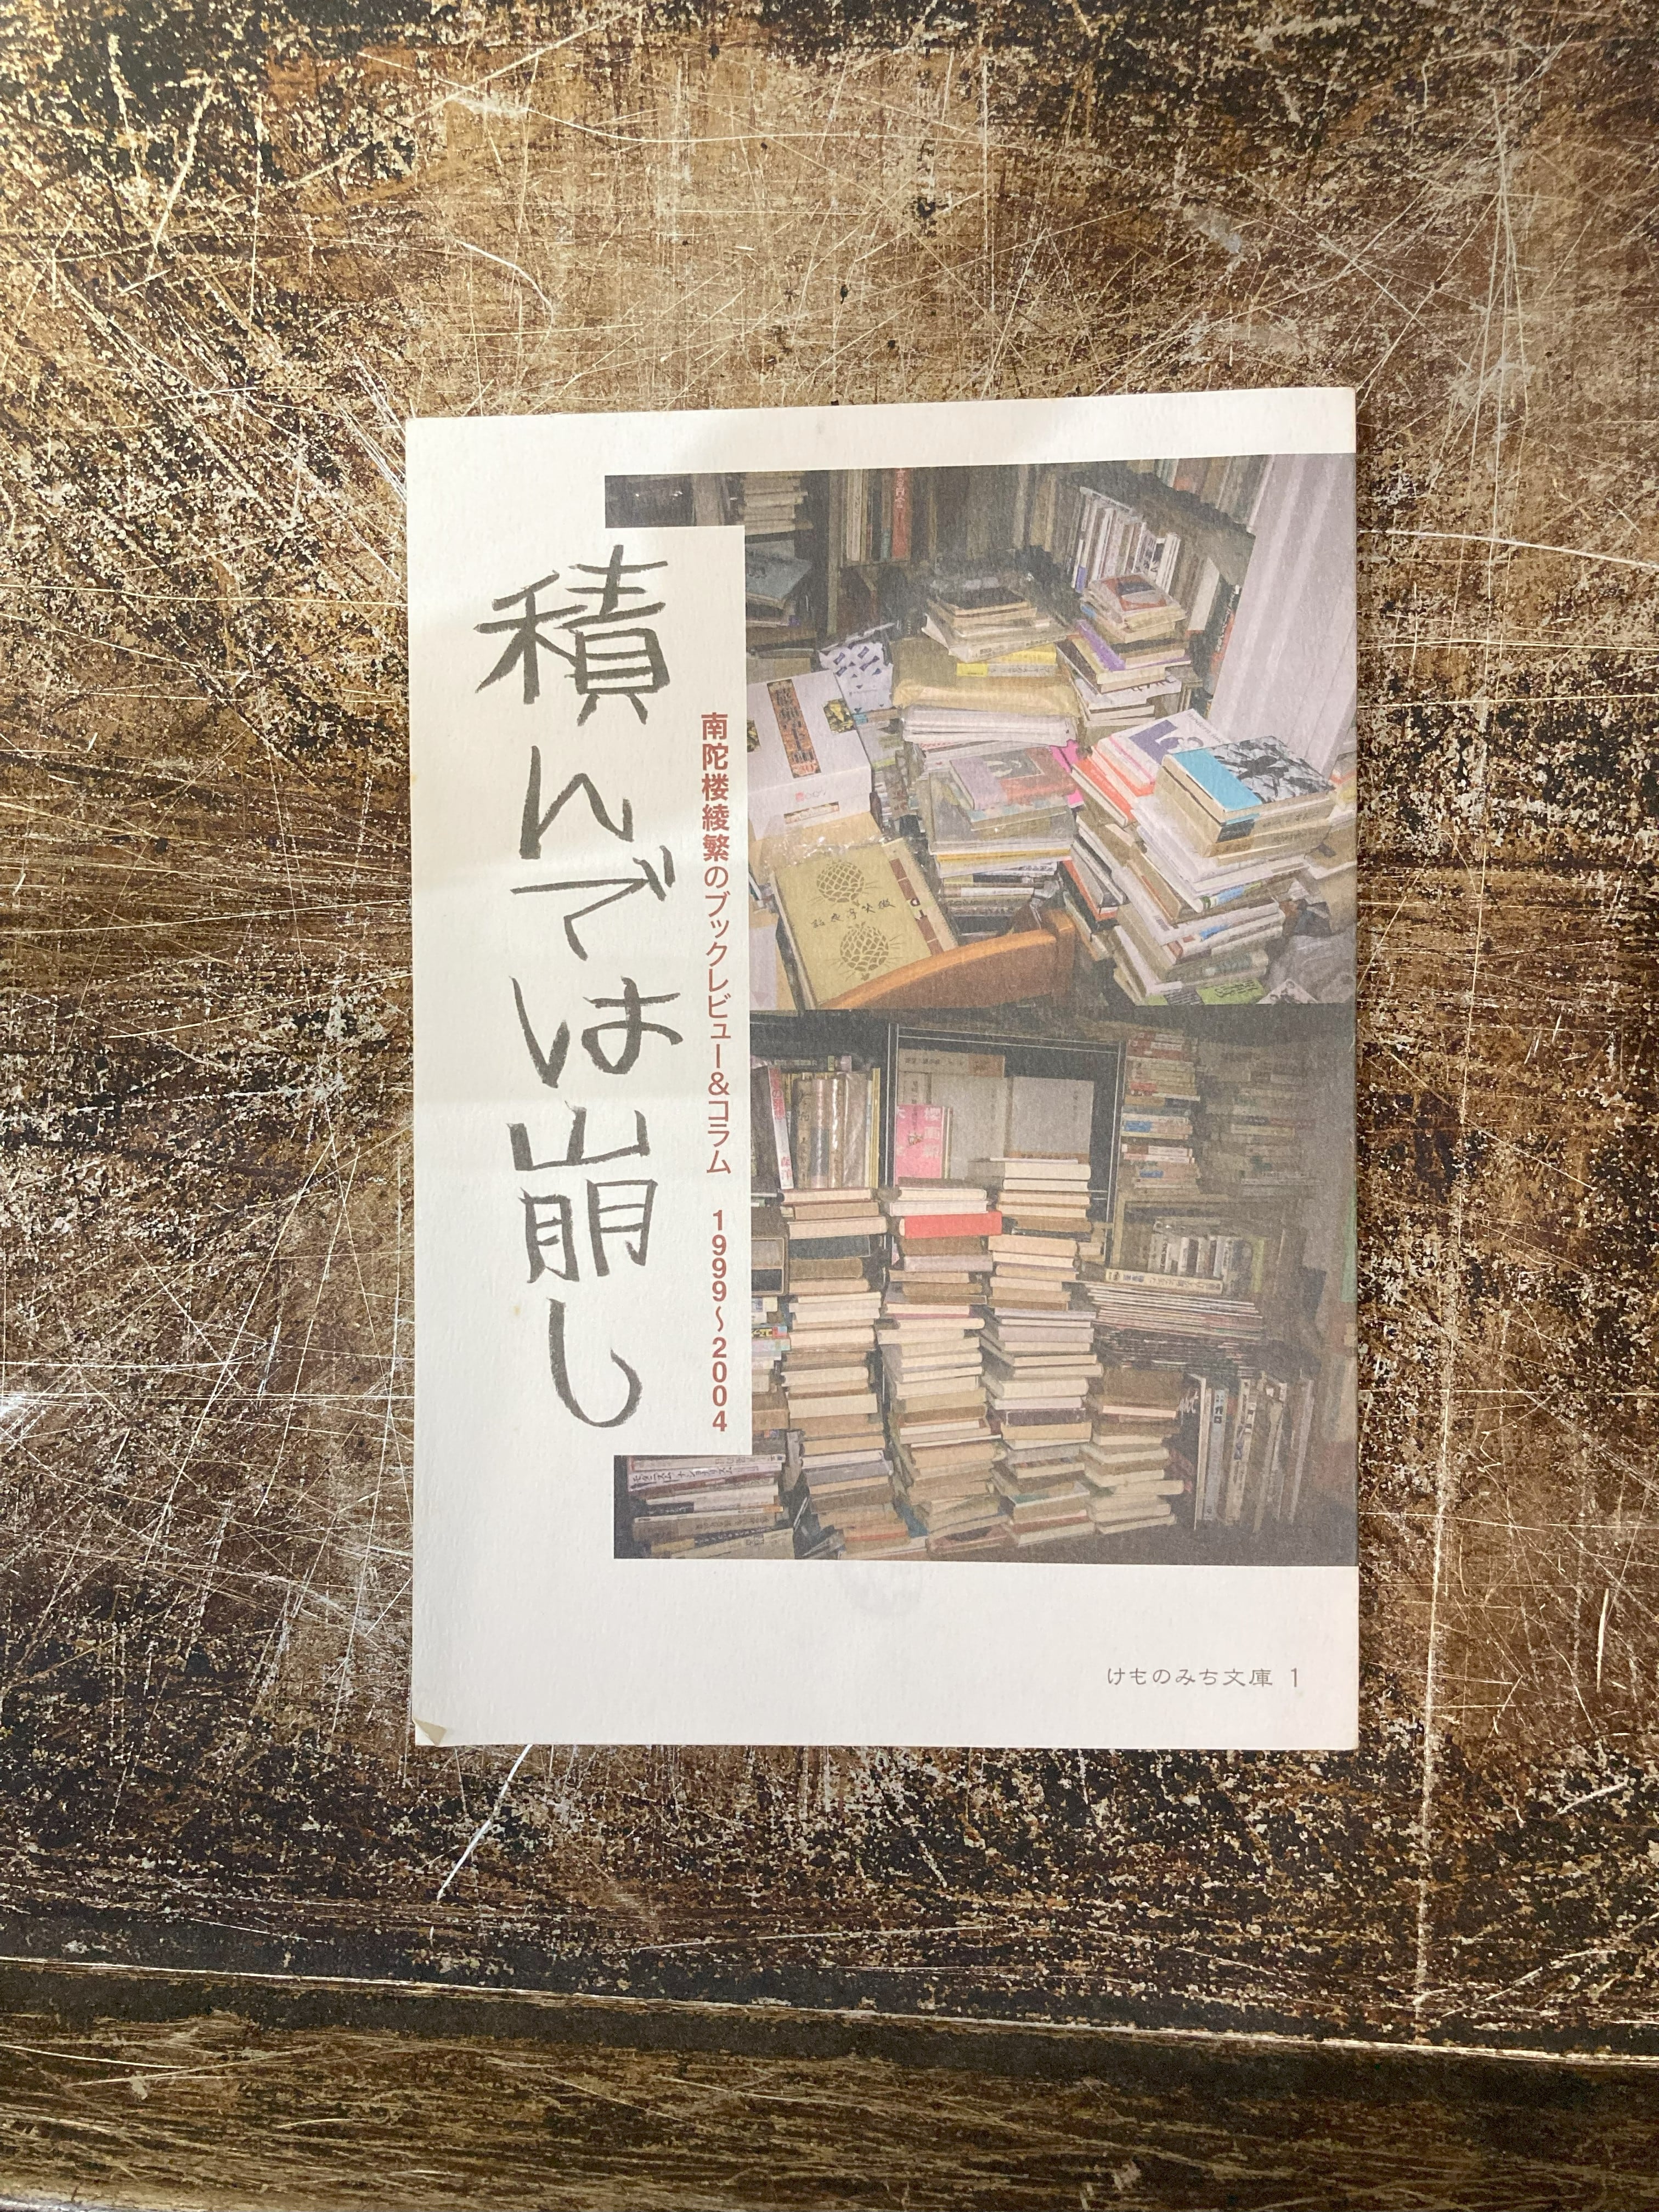 積んでは崩し
南陀楼綾繁のブックレビュー&コラム 1999〜2004
けものみち文庫 1